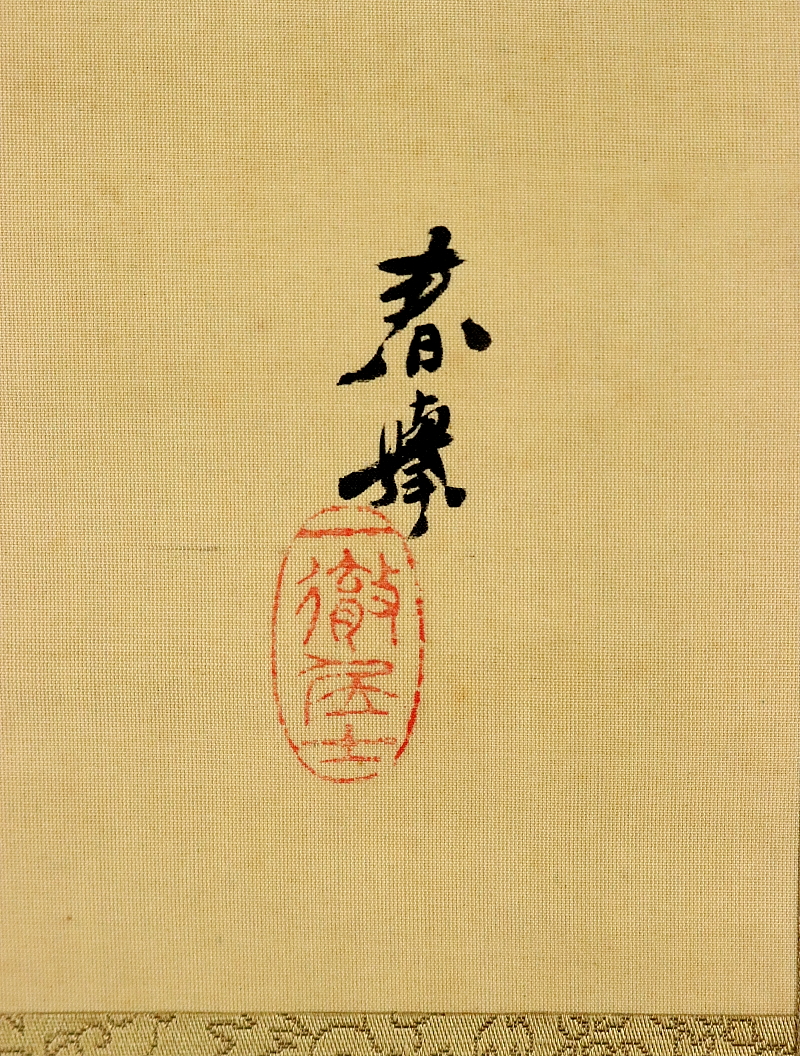 春擧
一徹居士